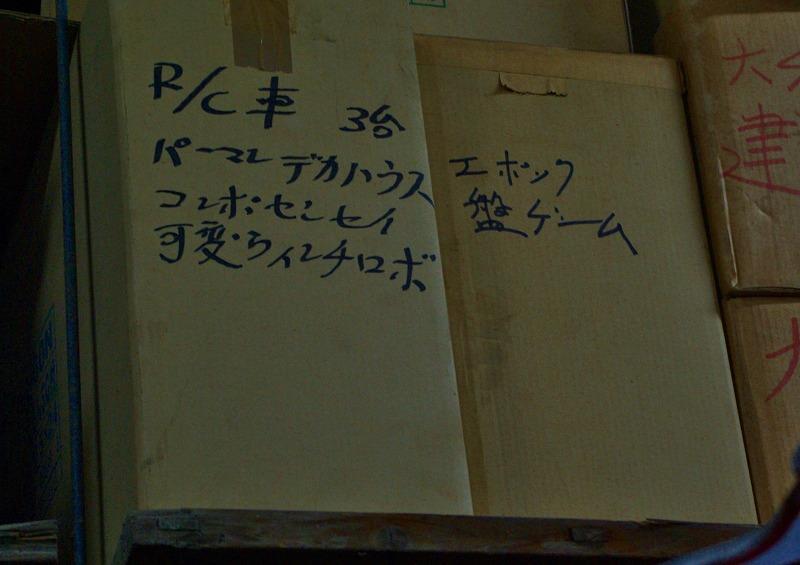 R/C車 3台
パーマン デカハウス
コンボセンセイ
可変ライルチロボ
エポック
盤ゲーム
大
建